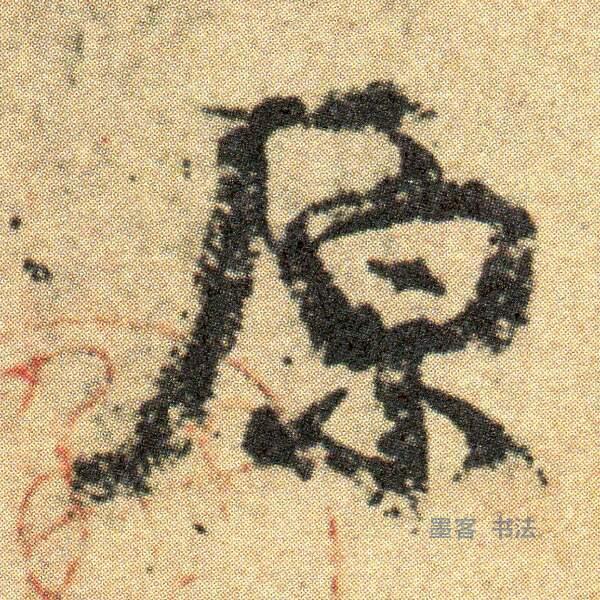 原
墨客 书法